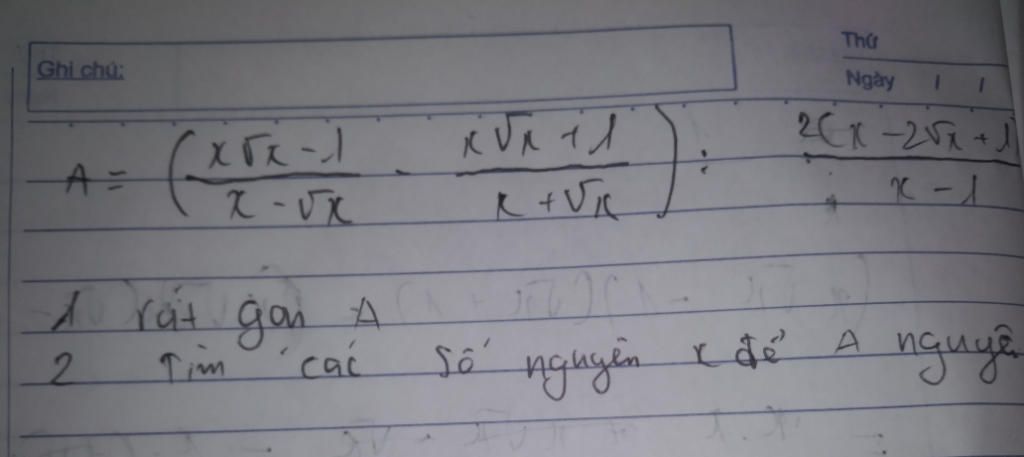 Thứ
Ghi chú:
Ngày
A = (x√x - 1 / x - √x - x√x + 1 / x + √x) : 2(x - 2√x + 1) / x - 1
1 rát gọn A
2 Tìm các số nguyên x để A nguyê